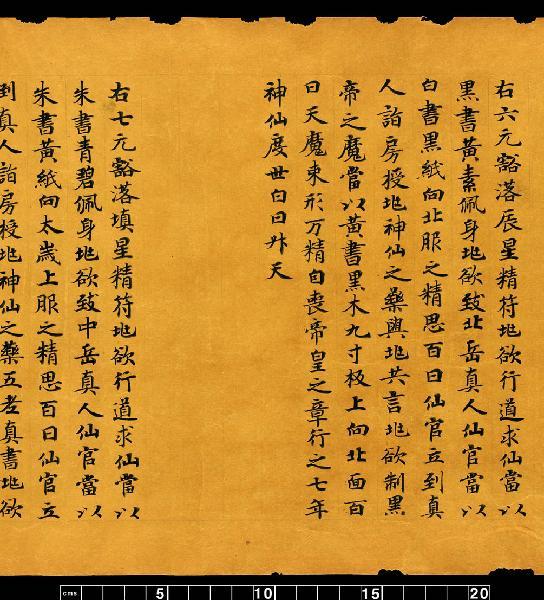 右六元豁落辰星精符地欲行道求仙當以
黑書黃素佩身地欲致北岳真人仙官當以
白書黑紙向北服之精思百日仙官立到真
人詣房授地神仙之藥與地共言地欲制黑
帝之魔當以黃書黑木九寸板上向北面百
日天魔束形万精自喪帝皇之章行之七年
神仙度世白日升天
右七元豁落填星精符地欲行道求仙當以
朱書青碧佩身地欲致中岳真人仙官當以
朱書黃紙向太歲上服之精思百日仙官立
到真人詣房授地神仙之藥五老真書地欲
cms 5 10 15 20